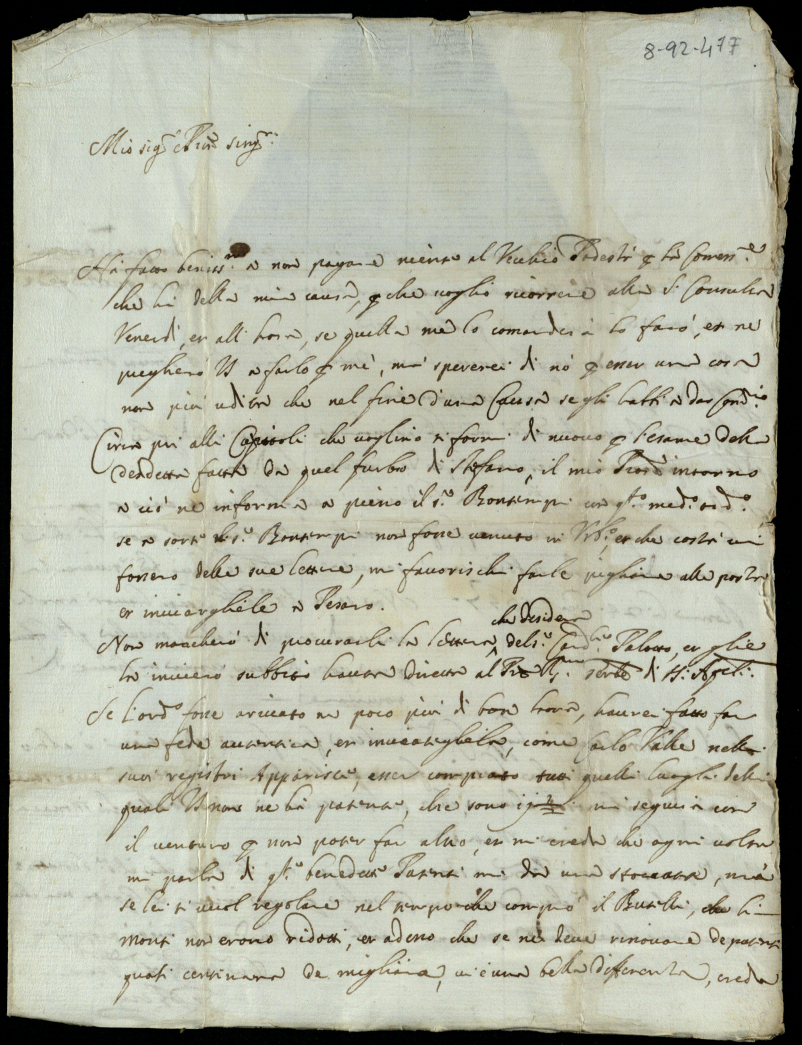 8-92-477
Mio sig.r e P.ron sing.r
Hà fatto beniss.o a non pagare niente al Vecchio Podestà p la
che hà della mia causa, p che voglio ricorrere alla S. Consulta
Venerdì, et all hora, se quella me lo comanderà lo farò, et ne
pregherò VS a farlo p me, mà spererei di nò p esser una cosa
non più udita che nel fine d'una Causa se gli batti a dar
Circa poi alli Capitoli che voglino si formi di nuovo p l'esame della
detta fatta da quel furbo di Stefano, il mio intorno
a ciò ne informa a pieno il s.r Bontempi in q.to med.o ord.o
se a sorte il s.r Bontempi non fosse venuto in et che costà vi
fossero delle sue lettere, mi favorischi farle pigliare alla posta
et inviarghiele a Pesaro.
che desidera
Non mancherò di procurarli la lettera del s.r Card.le Palotto, et glie
la invierò subbito havuta diretta al di S. Agst.
Se l'ord.o fosse arrivato un poco più di bon hora, haurei fatto far
una fede autentica, et inviataghela, come Carlo Valle nelli
suoi registri Apparisce, esser comprato tutti quelli luoghi delli
quali VS non ne hà patente, che sono mi seguirà con
il venturo p non poter far altro, et mi creda che ogni volta
mi parla di q.te benedette Patenti mi dà una stoccata, mà
se lei si vuol regolare nel tempo che comprò il Butelli, che li
Monti non erono ridotti, et adesso che se ne deve rinovare de patenti
quasi centinara de migliara, vi è una bella differenza, creda